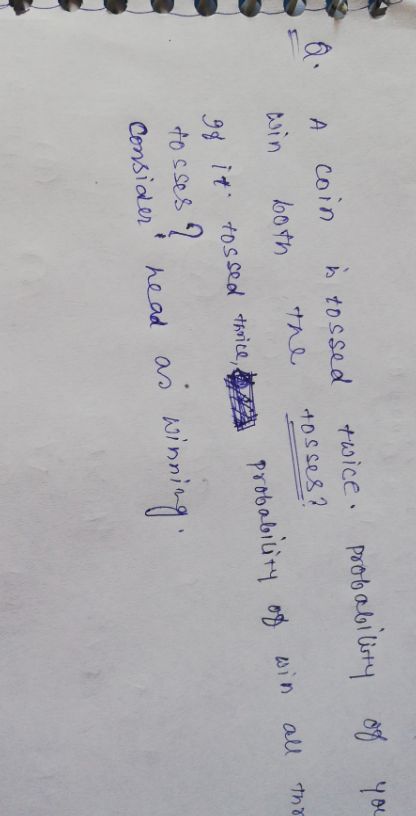 Q. A coin is tossed twice. probability of you
win both the tosses?
If it tossed thrice, probability of win all thr
tosses?
Consider head as winning.